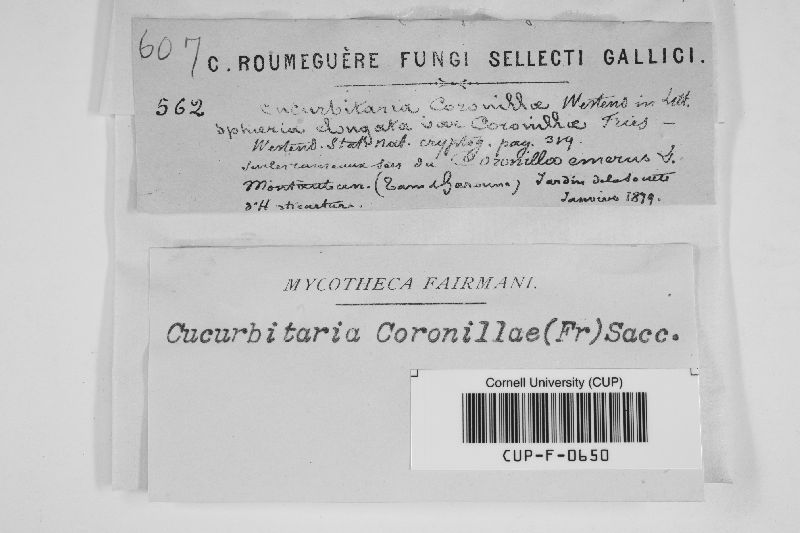 607
C. ROUMEGUÈRE FUNGI SELLECTI GALLICI.
562 Cucurbitaria Coronillæ Westend in Litt.
Sphæria elongata var Coronillæ Fries —
Westend. Stat. nat. cryptog. pag. 319.
rameaux secs du Coronilla emerus L.
Montauban. (Tarn & Garonne) Jardin de la Société
d'Horticulture. Janvier 1879.
MYCOTHECA FAIRMANI.
Cucurbitaria Coronillae(Fr)Sacc.
Cornell University (CUP)
CUP-F-0650